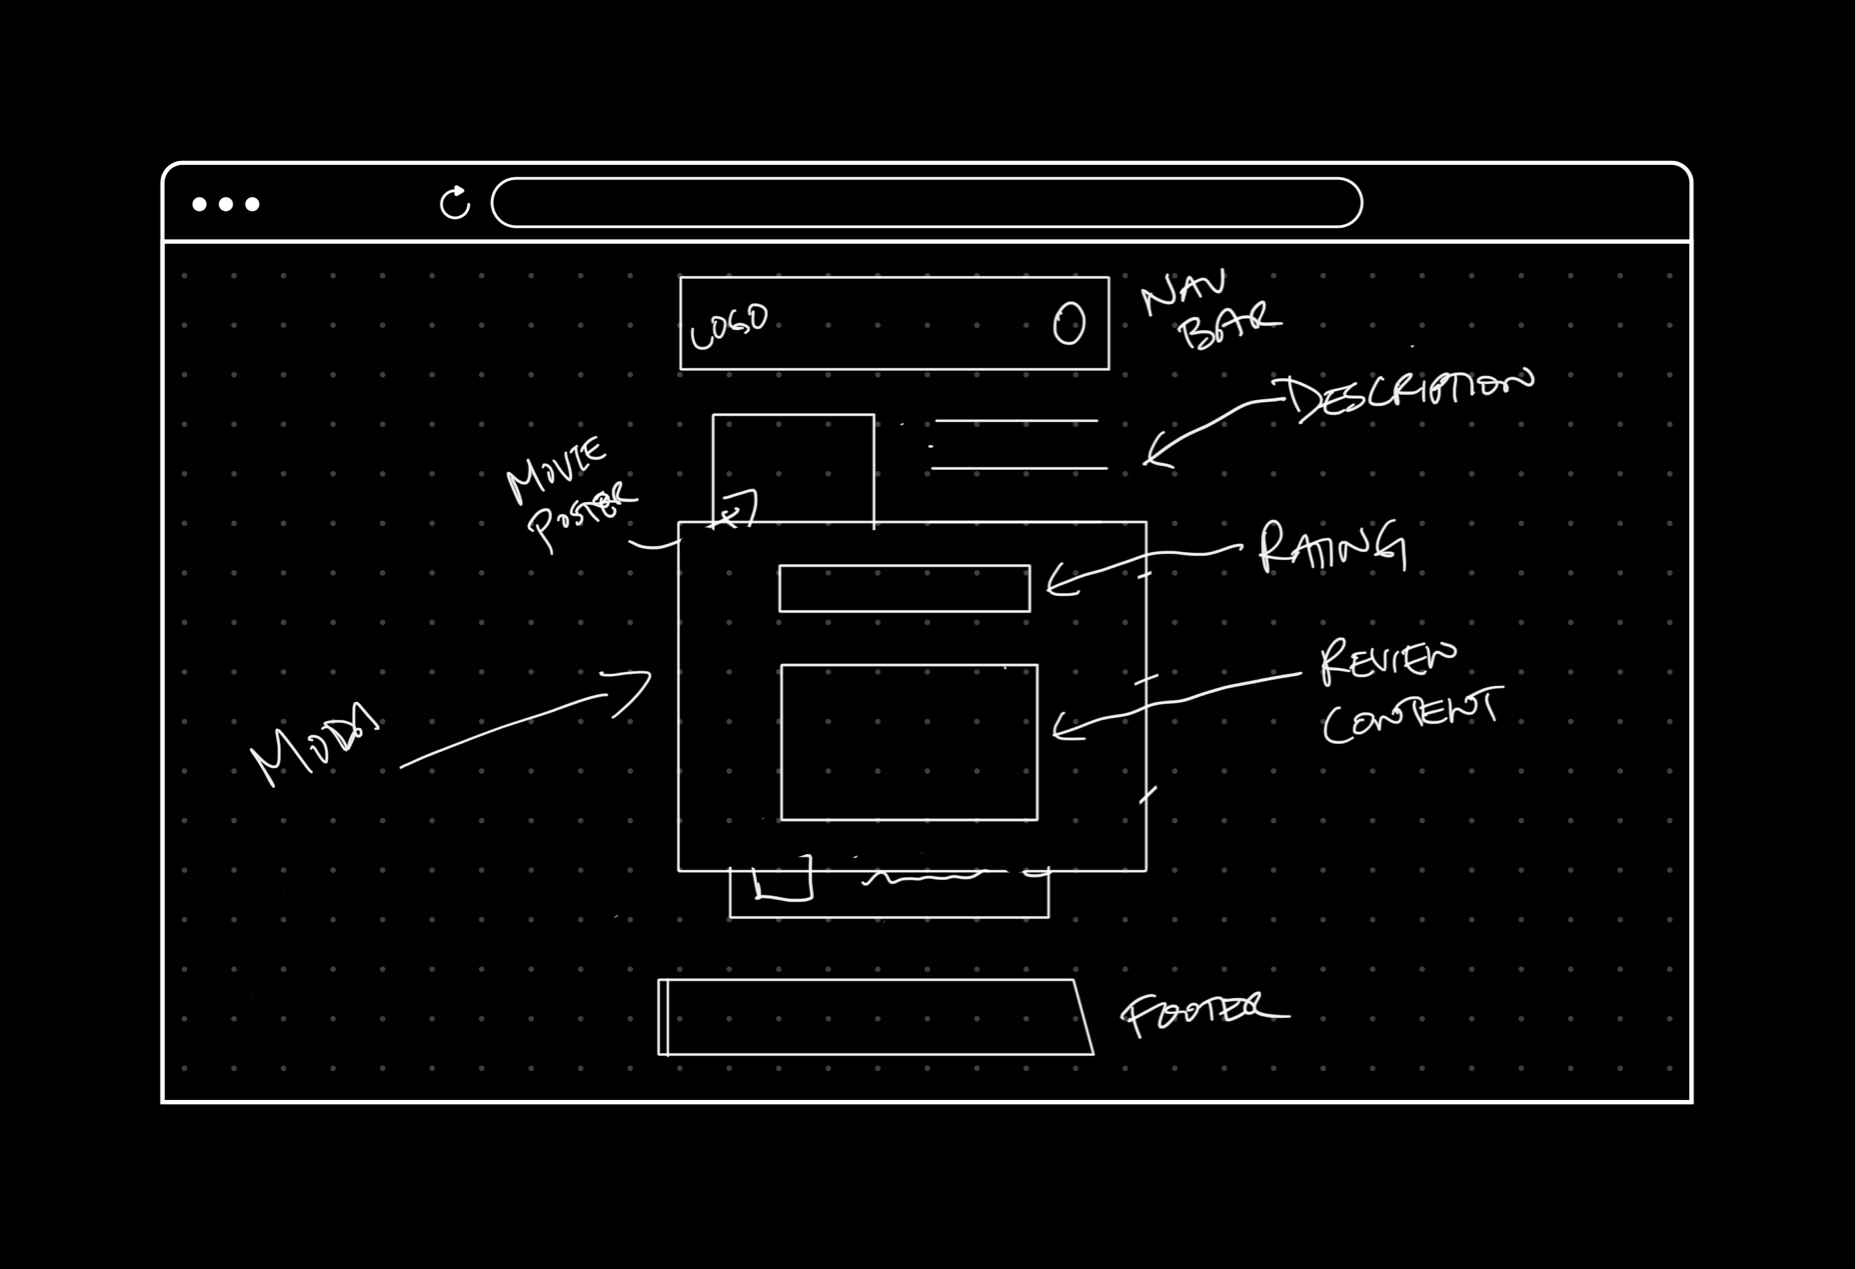 LOGO
NAV
BAR
DESCRIPTION
MOVIE
POSTER
RATING
REVIEW
CONTENT
MODA
FOOTER